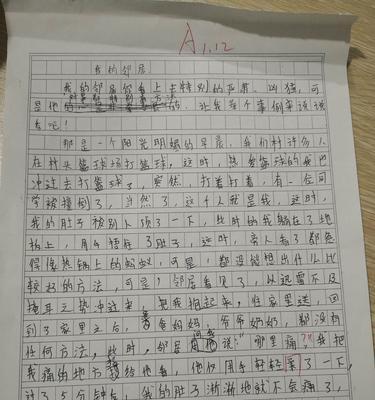 A 1.12
我的邻居
我的邻居你看上去特别的严肃、凶猛，可
是他的
的。让我举个事例来说说
看吧！
那是一个阳光明媚的早晨，我们村许多人
在村头篮球场打篮球，这时，热爱篮球的我也
冲过去打篮球了，突然，打着打着，有一位同
学被撞倒了，当然了，这个人就是我，这时，
我的肚子被别人顶了一下，此时的我躺在了地
板上，用手捂住了肚子，这时，旁人看了都急
得像热锅上的蚂蚁，可是，都没能想出什么比
较好的方法，可是！邻居看见了，以迅雷不及
掩耳之势冲过来，把我抱起来，往家里送，回
到了家里之后，爸爸妈妈，爷爷奶奶，都没有
任何方法，此时，邻居问我说：“哪里痛？”我把
我痛的地方指给他看，他仅用手轻轻揉了一下，
过了5分钟左右，我的肚子渐渐地就不会痛了，